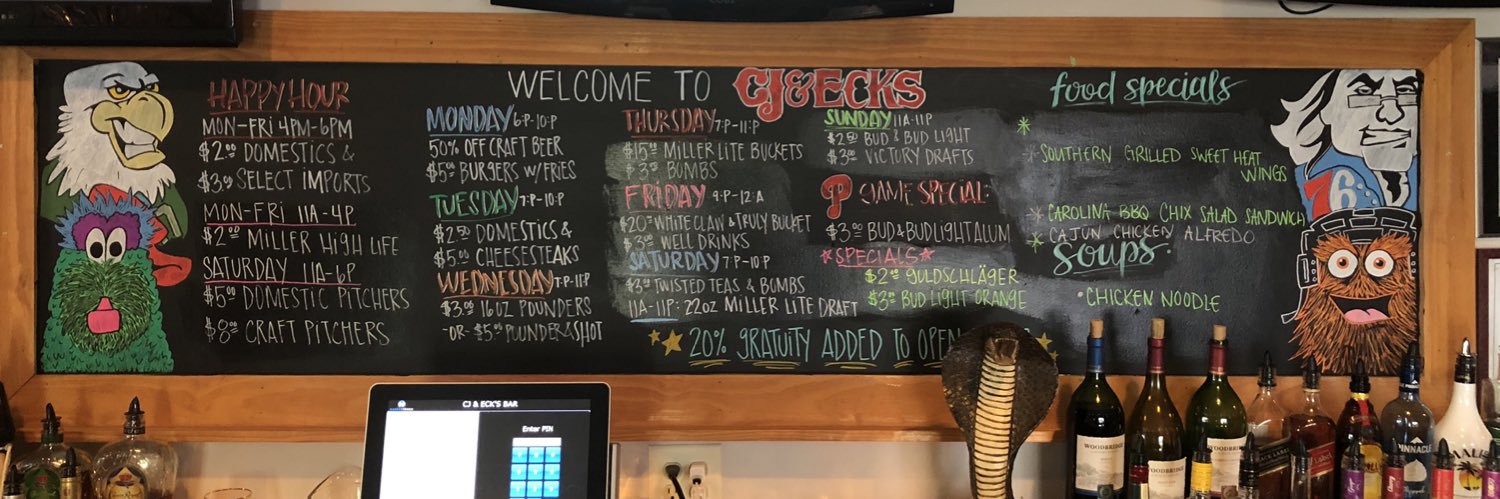 WELCOME TO CJ & ECKS
HAPPY HOUR
MON-FRI 4PM-6PM
$2.00 DOMESTICS &
$3.00 SELECT IMPORTS
MON-FRI 11A-4P
$2.00 MILLER HIGH LIFE
SATURDAY 11A-6P
$5.00 DOMESTIC PITCHERS
$8.00 CRAFT PITCHERS
MONDAY 6P-10P
50% OFF CRAFT BEER
$5.00 BURGERS W/FRIES
TUESDAY 7P-10P
$2.50 DOMESTICS &
$5.00 CHEESESTEAKS
WEDNESDAY 7P-11P
$3.00 16OZ POUNDERS
-OR- $5.00 POUNDER & SHOT
THURSDAY 7P-11P
$15.00 MILLER LITE BUCKETS
$3.00 BOMBS
FRIDAY 9P-12A
$20.00 WHITE CLAW & TRULY BUCKET
$3.00 WELL DRINKS
SATURDAY 7P-10P
$3.00 TWISTED TEAS & BOMBS
11A-11P: 22OZ MILLER LITE DRAFT
SUNDAY 11A-11P
$2.50 BUD & BUD LIGHT
$3.00 VICTORY DRAFTS
P GAME SPECIAL:
$3.00 BUD & BUD LIGHT ALUM
*SPECIALS*
$2.00 GULDSCHLÄGER
$3.00 BUD LIGHT ORANGE
20% GRATUITY ADDED TO OPEN
food specials
SOUTHERN GRILLED SWEET HEAT
WINGS
CAROLINA BBQ CHIX SALAD SANDWICH
CAJUN CHICKEN ALFREDO
SOUPS.
• CHICKEN NOODLE
76
CJ & ECK'S BAR
Enter PIN
WOODBRIDGE
WOODBRIDGE
WOODBRIDGE
BLACK LABEL
PINNACLE
MALIBU